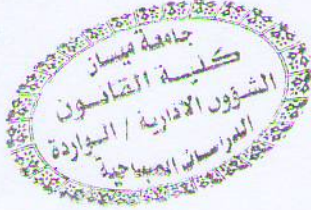 جامعة ميسان
كلية القانون
الشؤون الادارية / الواردة
الدراسات الصباحية